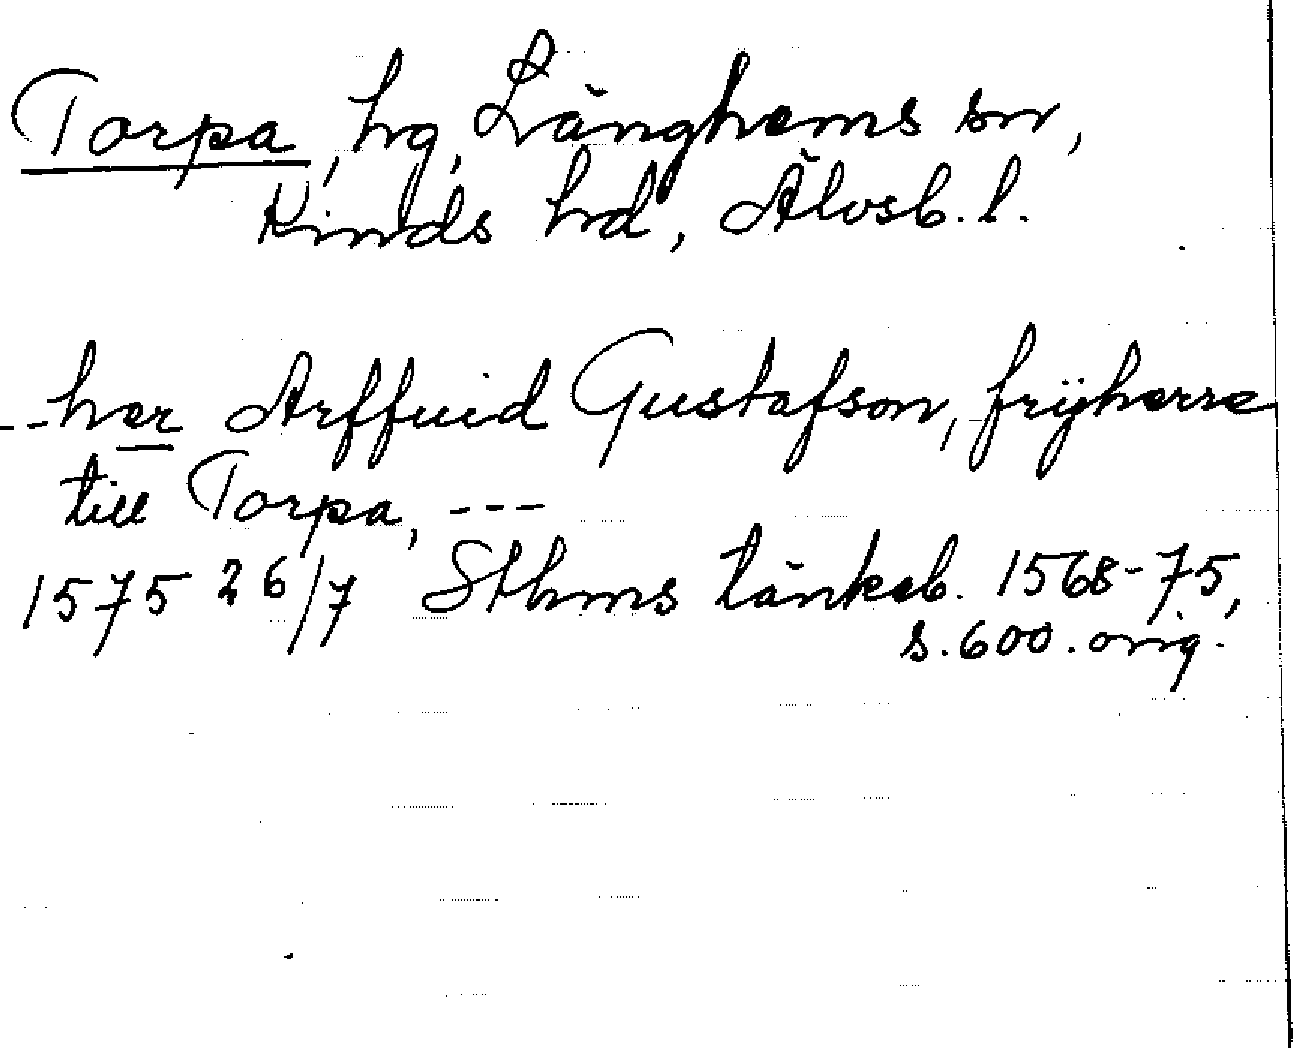 Torpa, hg, Länghems sn,
Kinds hd, Älvsb. l.
--her Arffuid Gustafson, frÿherre
till Torpa, ---
1575 26/7 Sthms tänkeb. 1568-75,
s. 600. orig.